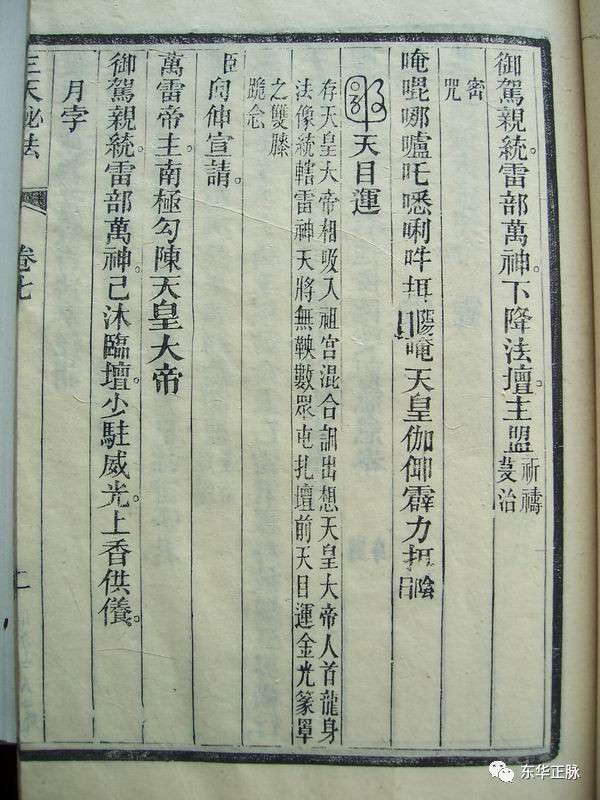 御駕親統。雷部萬神。下降法壇。主盟祈禱
芟治
密
咒
唵哪嚧吒唎吽陽唵天皇伽霹力陰
天目運
存天皇大帝相吸入祖宫混合出想天皇大帝人首龍身
法像統轄雷神天將無鞅數眾屯扎壇前天目運金光篆罩
之雙膝
跪念
臣向伸宣請。
萬雷帝主南極勾陳天皇大帝
御駕親統。雷部萬神。已沐臨壇。少駐威光。上香供儀。
月孛
天秘法 卷七
东华正脉